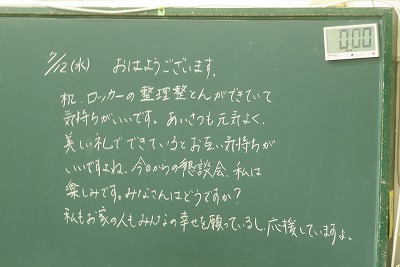 7/12(水) おはようございます。
0:00
机、ロッカーの整理整とんができていて
気持ちがいいです。あいさつも元気よく、
美しい礼でできているとお互い気持ちが
いいですよね。今日からの懇談会、私は
楽しみです。みなさんはどうですか？
私もお家の人もみんなの幸せを願っているし、応援していますよ。